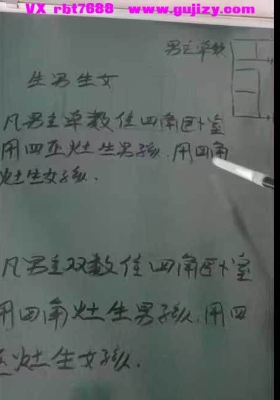 VX rbt7688 www.gujizy.com
男主单数
生男生女
凡男主单数住四角卧室
用四正灶生男孩.用四角
灶生女孩.
凡男主双数住四角卧室
用四角灶生男孩.用四
正灶生女孩.